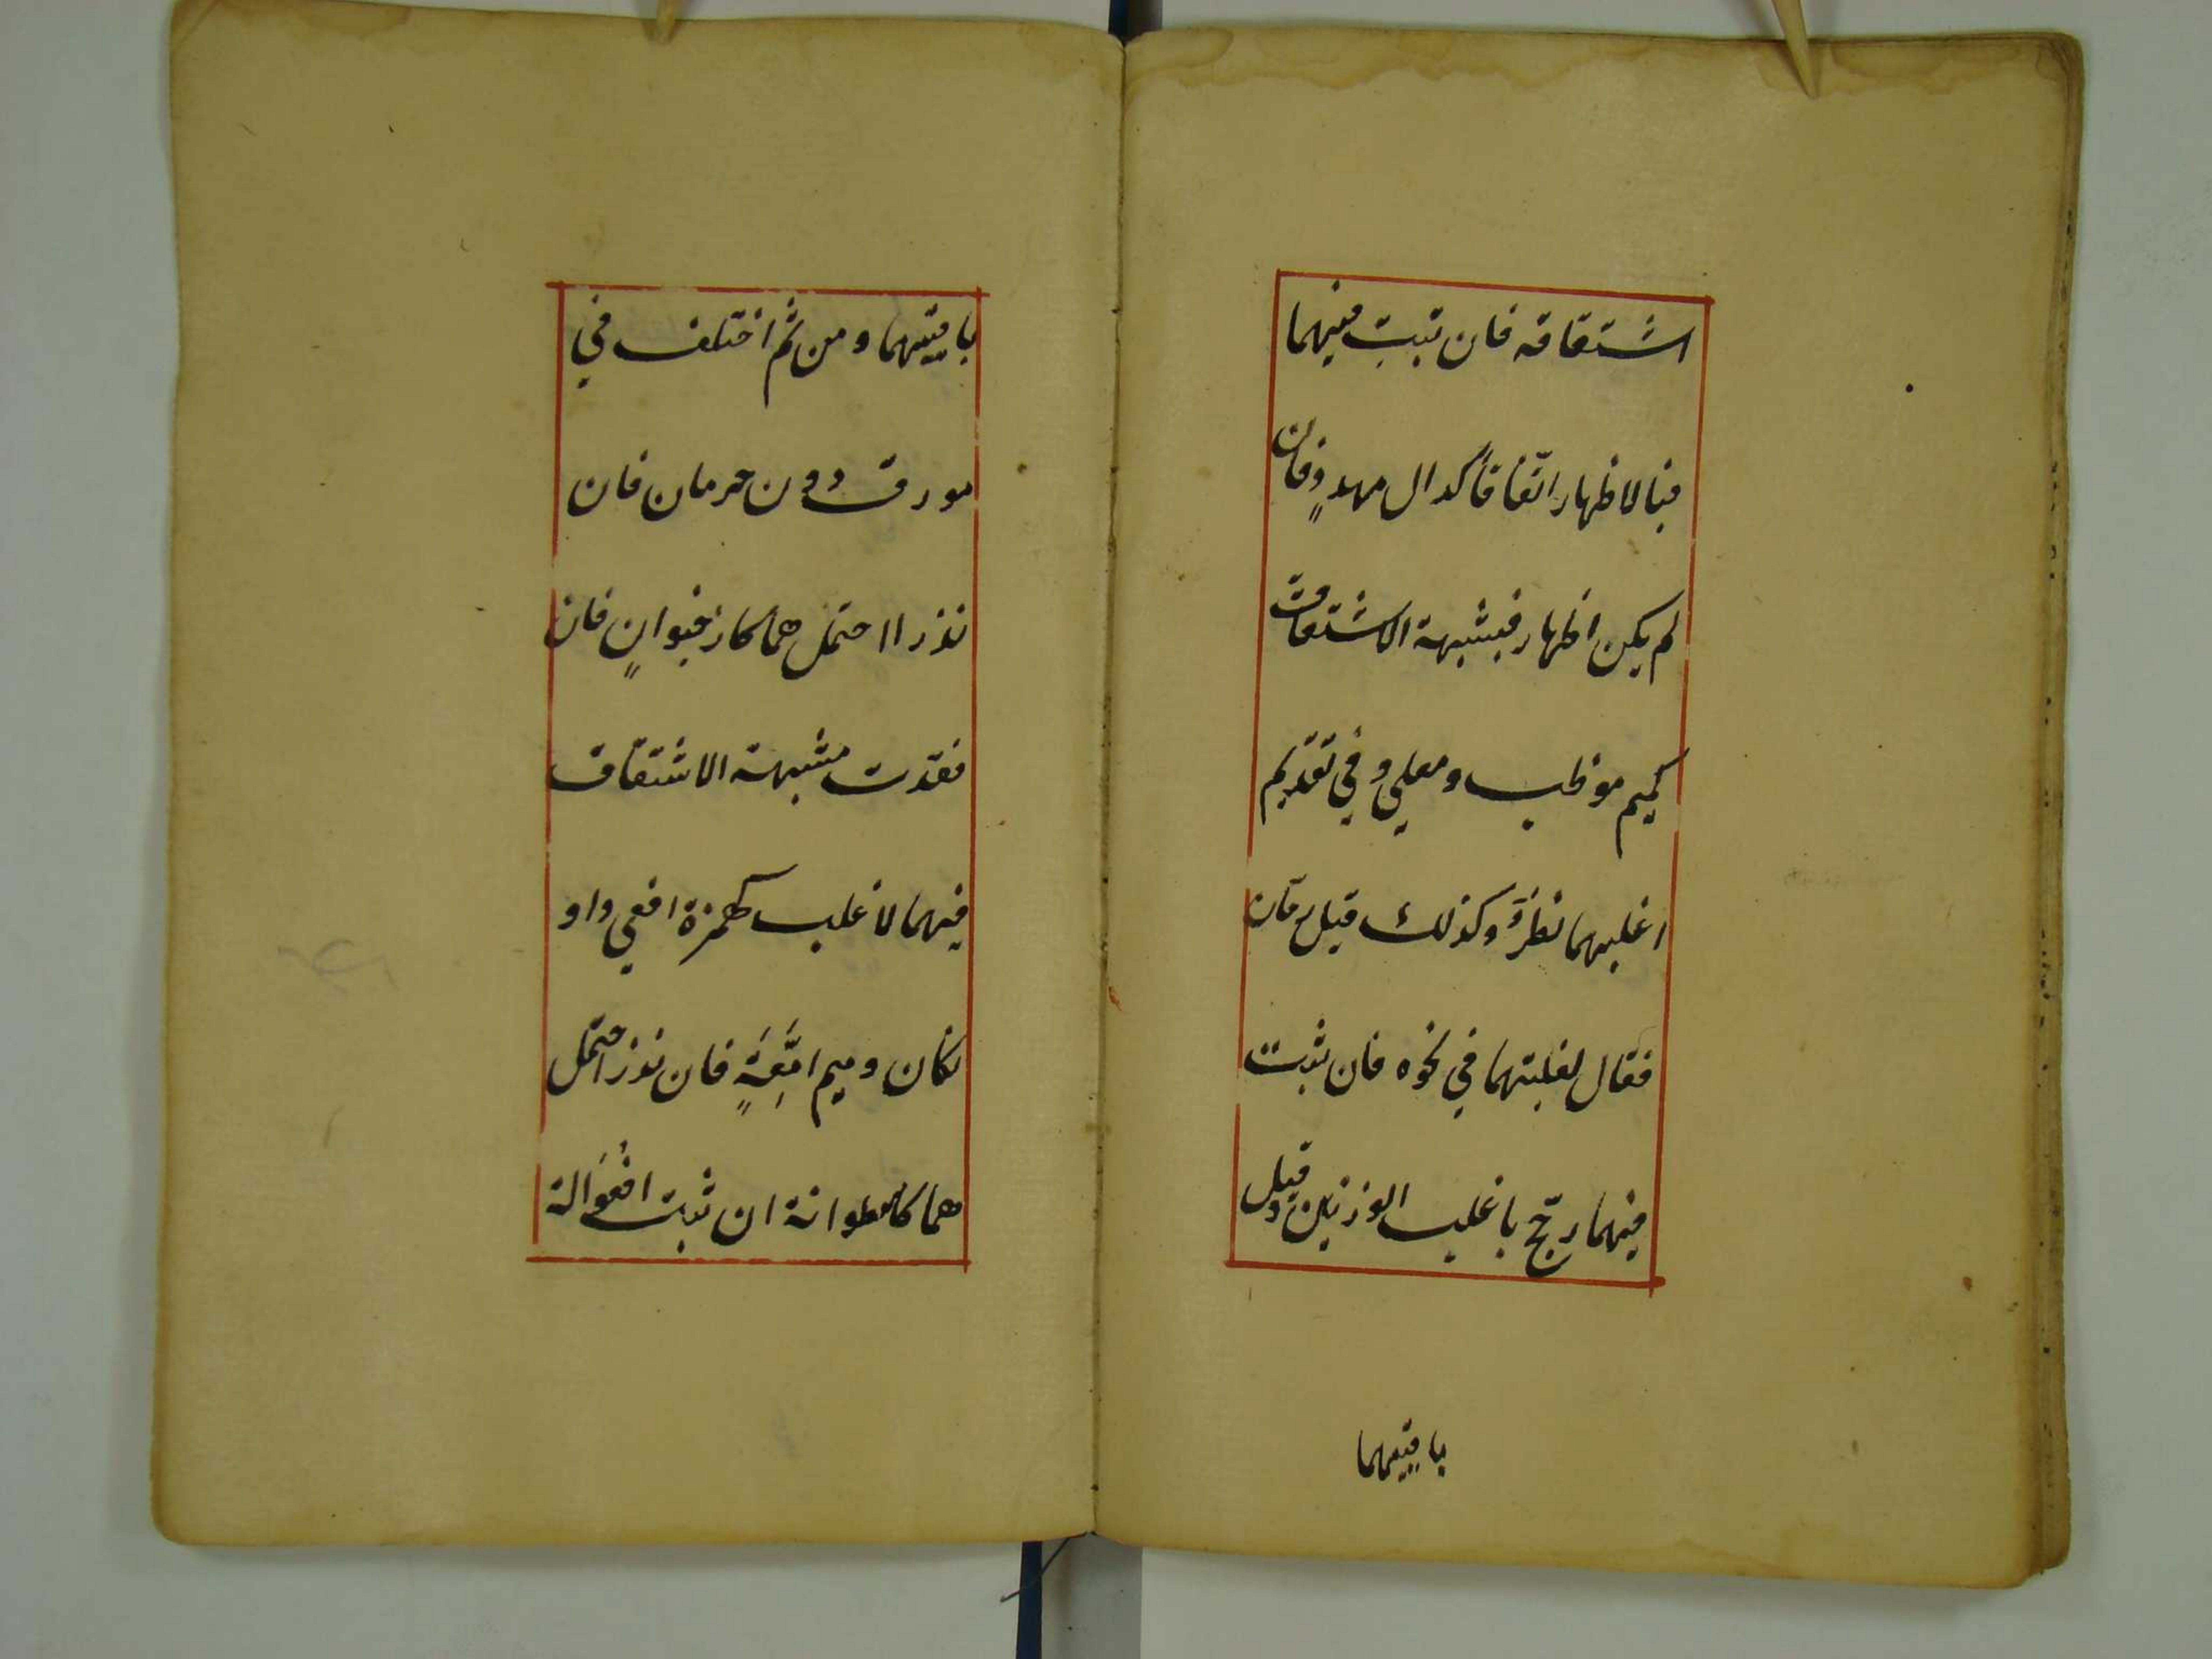 اشتقاقه فان ثبت فيهما
فبالاظهار اتّفاقاً كدال مهددٍ وفان
لم يكن اظهار فبشبهة الاشتقاق
كميم موظب ومعلى وفي تقديم
اغلبهما نظرٌ وكذلك قيل رمّان
فقال لغلبتهما في نحوه فان ثبت
فيهما رجّح باغلب الوزنين وقيل
باقيسهما
باقيسهما ومن ثم اختلف في
مورق دون حرمان فان
ندرا احتمل هما كارخبوانٍ فان
فقدت شبهة الاشتقاق
فيهما لاغلب كهمزة افعي واو
تكان وميم امّعةٍ فان ندر احتمل
هما كاسطوانة ان ثبت افعوالة